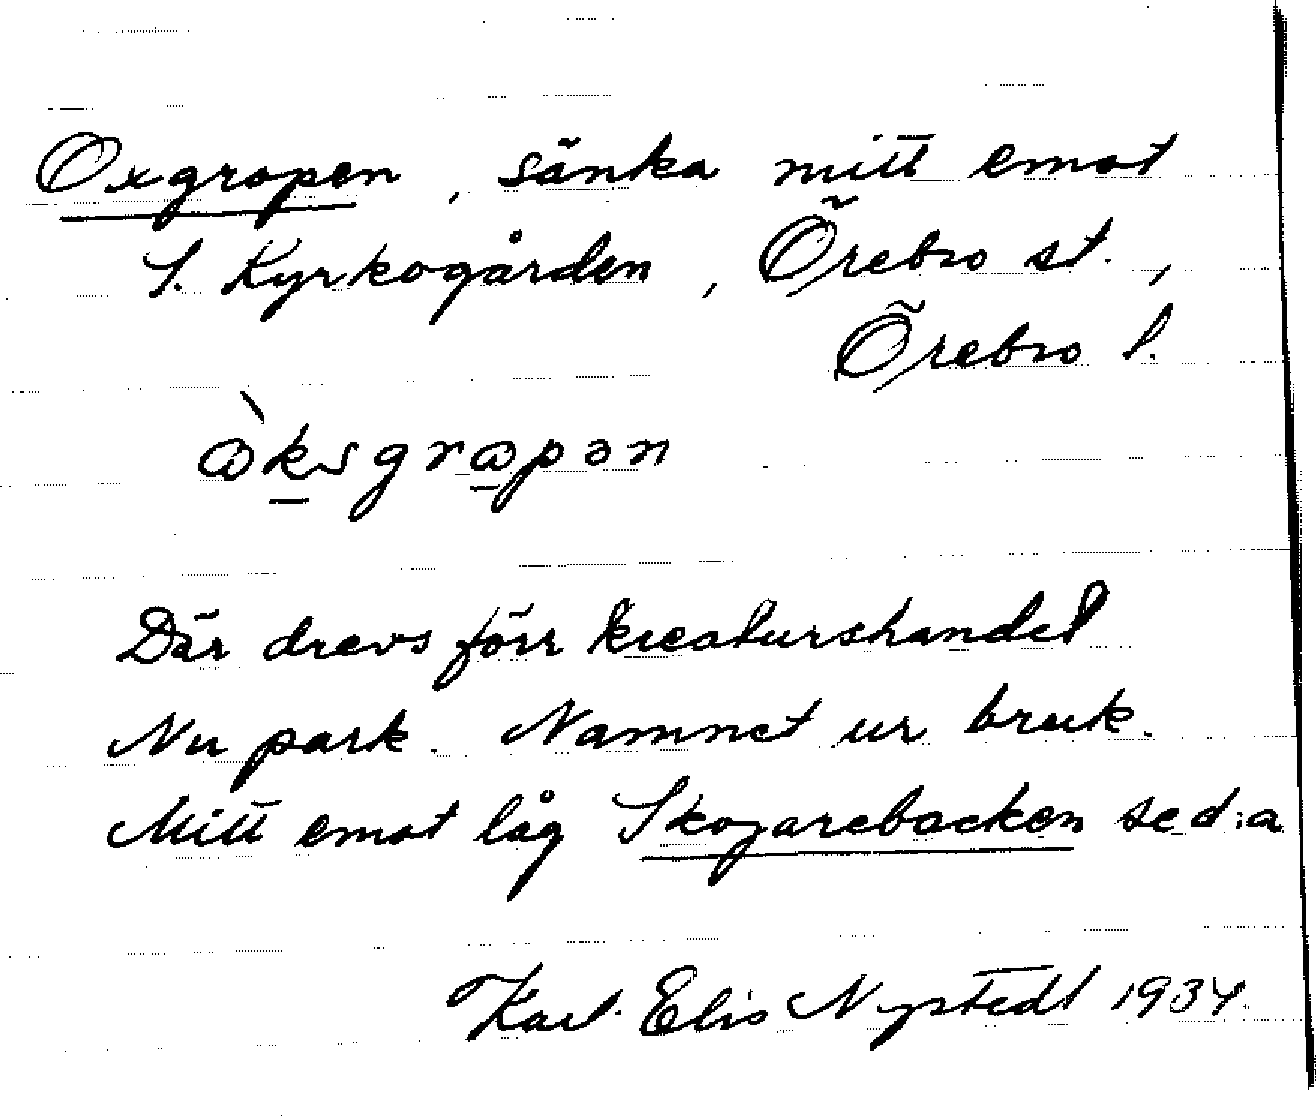 Oxgropen, sänka mitt emot
S. Kyrkogården, Örebro st.,
Örebro l.
òksgropən
Där drevs förr kreaturshandel
Nu park. Namnet ur bruk.
Mitt emot låg Skogarebacken sed:a
Karl Elis Nystedt 1934.